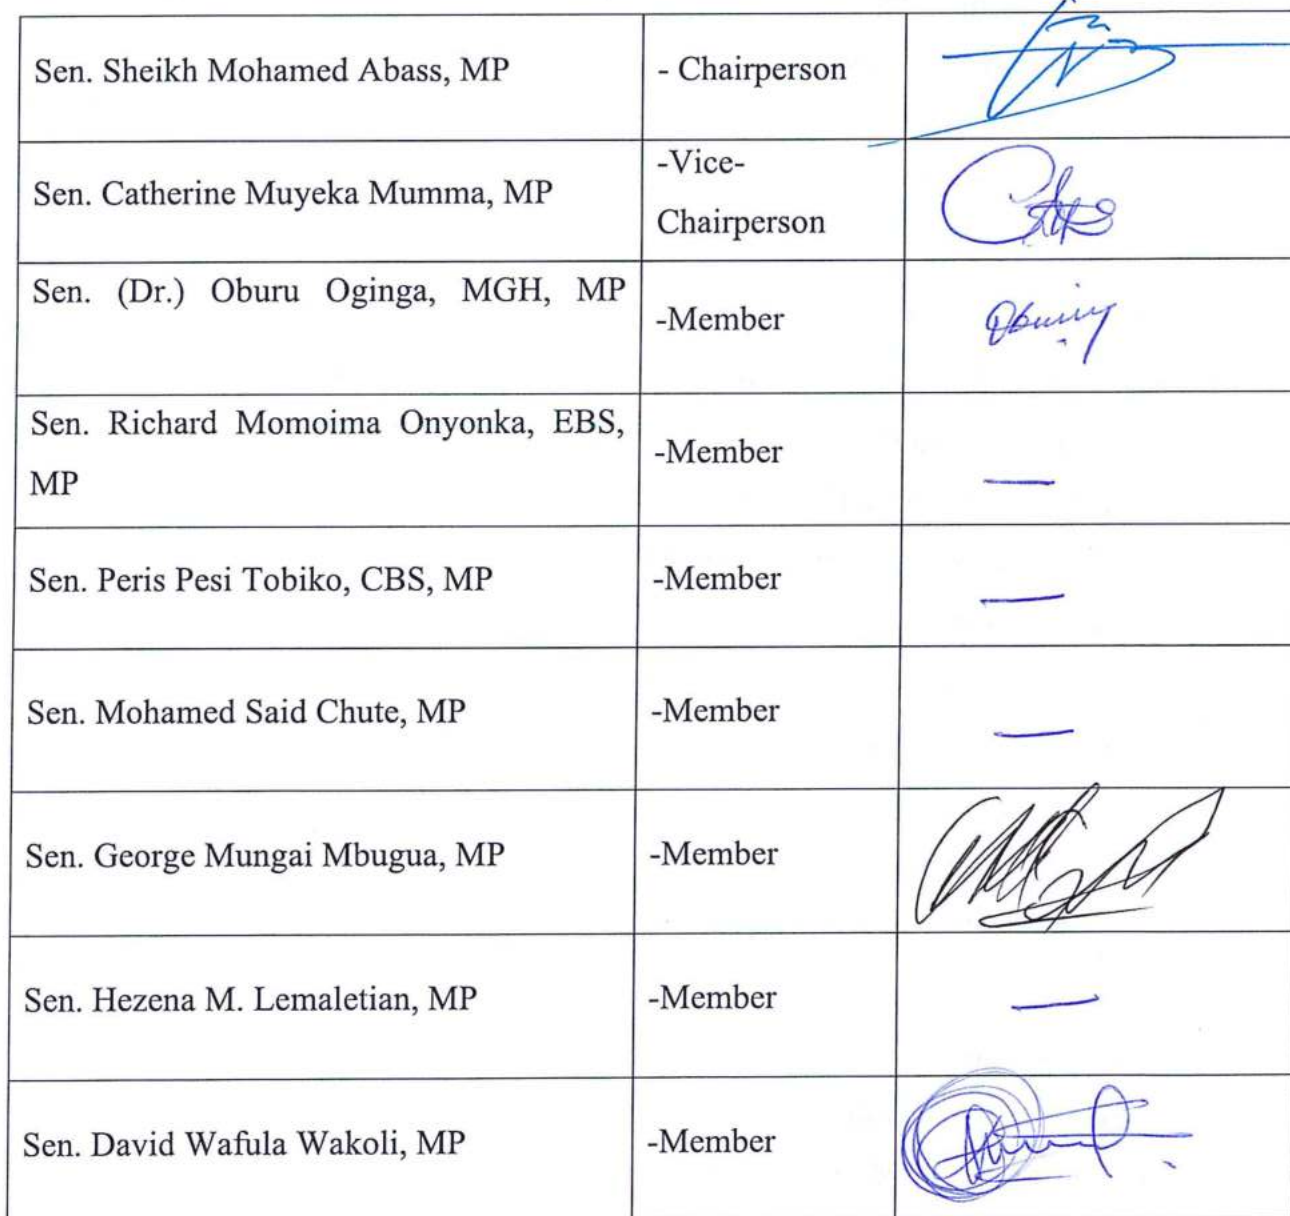 Sen. Sheikh Mohamed Abass, MP
- Chairperson
Sen. Catherine Muyeka Mumma, MP
-Vice-
Chairperson
Sen. (Dr.) Oburu Oginga, MGH, MP
-Member
Sen. Richard Momoima Onyonka, EBS,
MP
-Member
—
Sen. Peris Pesi Tobiko, CBS, MP
-Member
—
Sen. Mohamed Said Chute, MP
-Member
—
Sen. George Mungai Mbugua, MP
-Member
Sen. Hezena M. Lemaletian, MP
-Member
—
Sen. David Wafula Wakoli, MP
-Member